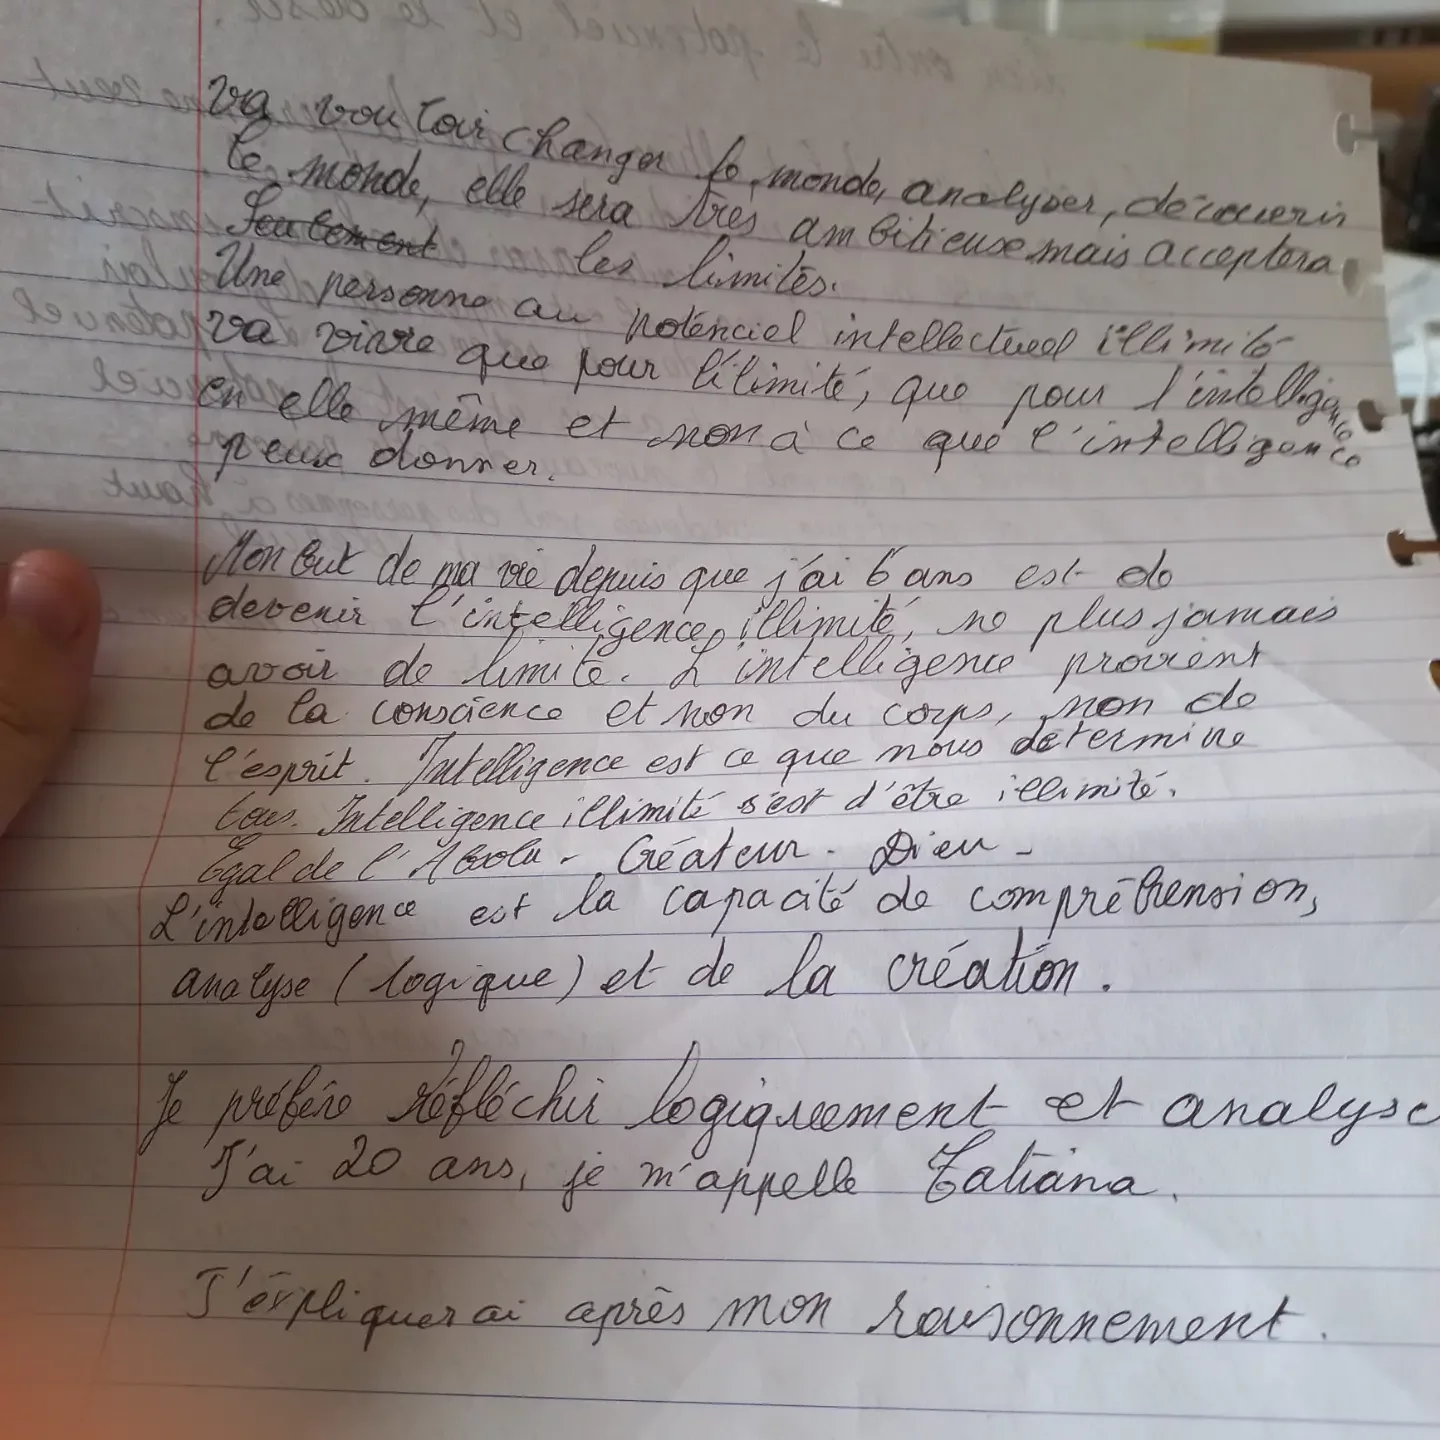 va vouloir changer le monde, analyser, découvrir
le monde, elle sera très ambitieuse mais acceptera
Seulement les limites.
Une personne au potenciel intellectuel illimité
va vivre que pour l'ilimité, que pour l'intelligence
en elle même et non à ce que l'intelligence
peux donner.
Mon but de ma vie depuis que j'ai 6 ans est de
devenir l'intelligence illimité, ne plus jamais
avoir de limite. L'intelligence provient
de la conscience et non du corps, non de
l'esprit. Intelligence est ce que nous determine
tous. Intelligence illimité s'est d'être illimité.
Égal de l'Absolu - Créateur - Dieu -
L'intelligence est la capacité de compréhension,
analyse (logique) et de la création.
Je préfère réfléchir logiquement et analyse
J'ai 20 ans, je m'appelle Tatiana.
J'éxpliquerai après mon raisonnement.